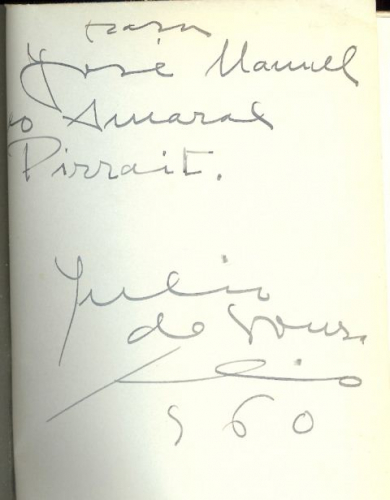 para
José Manuel
o Amaral
Pirrait.
Julio
de Sous.
960